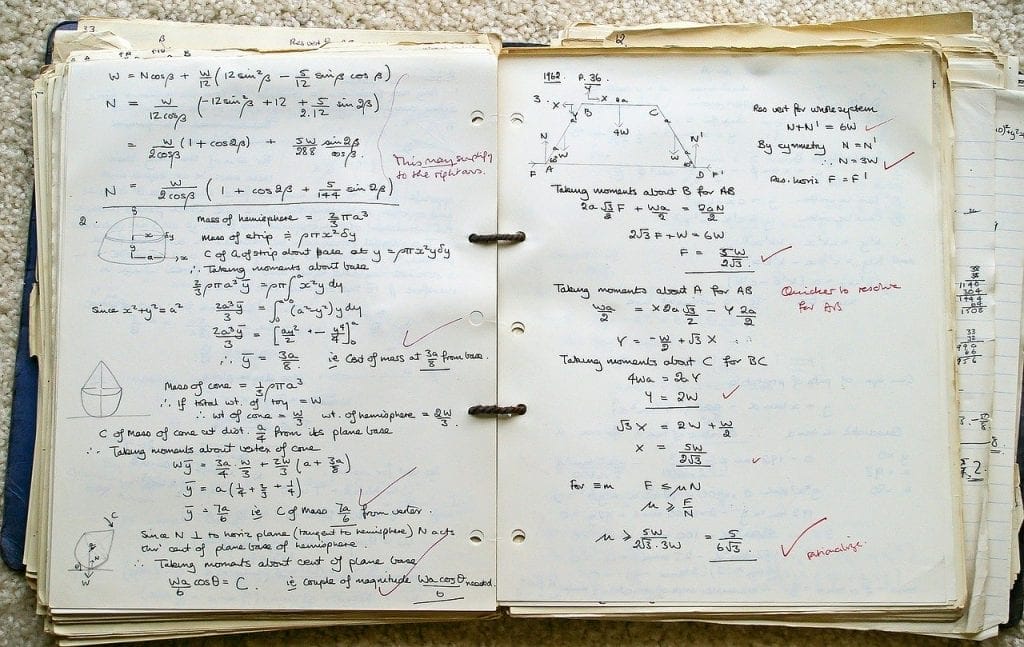 W = Ncosβ + W/12 (12 sin²β − 5/12 sinβ cosβ)
N = W/12cosβ (−12sin²β + 12 + 5/2.12 sin2β)
= W/2cosβ (1 + cos2β) + 5W/288 sin2β/cosβ.
This may simplify
to the right ans.
N = W/2cosβ (1 + cos2β + 5/144 sin2β)
2.
Mass of hemisphere = 2/3 πa³
Mass of strip ≏ ρπx²δy
C of G of strip about base at y = ρπx²yδy
∴ Taking moments about base
2/3 ρπa³ȳ = ρπ∫₀ᵃ x²y dy
Since x²+y² = a² 2a³ȳ/3 = ∫₀ᵃ (a²−y²) y dy
2a³ȳ/3 = [a²y²/2 − y⁴/4]₀ᵃ
∴ ȳ = 3a/8 ie Cent of mass at 3a/8 from base.
Mass of cone = 1/3 ρπa³
∴ If total wt. of toy = W
∴ wt of cone = W/3 wt. of hemisphere = 2W/3
C of Mass of cone at dist. a/4 from its plane base
∴ Taking moments about vertex of cone
Wȳ = 3a/4 . W/3 + 2W/3 (a + 3a/8)
ȳ = a(1/4 + 2/3 + 1/4)
ȳ = 7a/6 ie C of Mass 7a/6 from vertex.
Since N ⊥ to horiz plane (tangent to hemisphere) N acts
thro' cent of plane base of hemisphere.
∴ Taking moments about cent of plane base
Wa/6 cosθ = C. ie couple of magnitude Wa cosθ/6 needed.
12.
1962 P.36.
3.
Y
X
X
B
2a
C
4W
N
N'
W
W
F
A
D
F'
Res vert for whole system
N+N' = 6W
By symmetry N = N'
∴ N = 3W
Res. horiz F = F'
Taking moments about B for AB
2a√3/2 F + Wa/2 = 2aN/2
2√3 F + W = 6W
F = 5W/2√3.
Taking moments about A for AB
Quicker to resolve
for AB
Wa/2 = X 2a√3/2 − Y 2a/2
Y = −W/2 + √3 X
Taking moments about C for BC
4Wa = 2aY
Y = 2W
√3 X = 2W + W/2
X = 5W/2√3
For ≡m F ≤ μN
μ ≥ F/N
μ ≥ 5W/2√3.3W = 5/6√3.
rationalize.